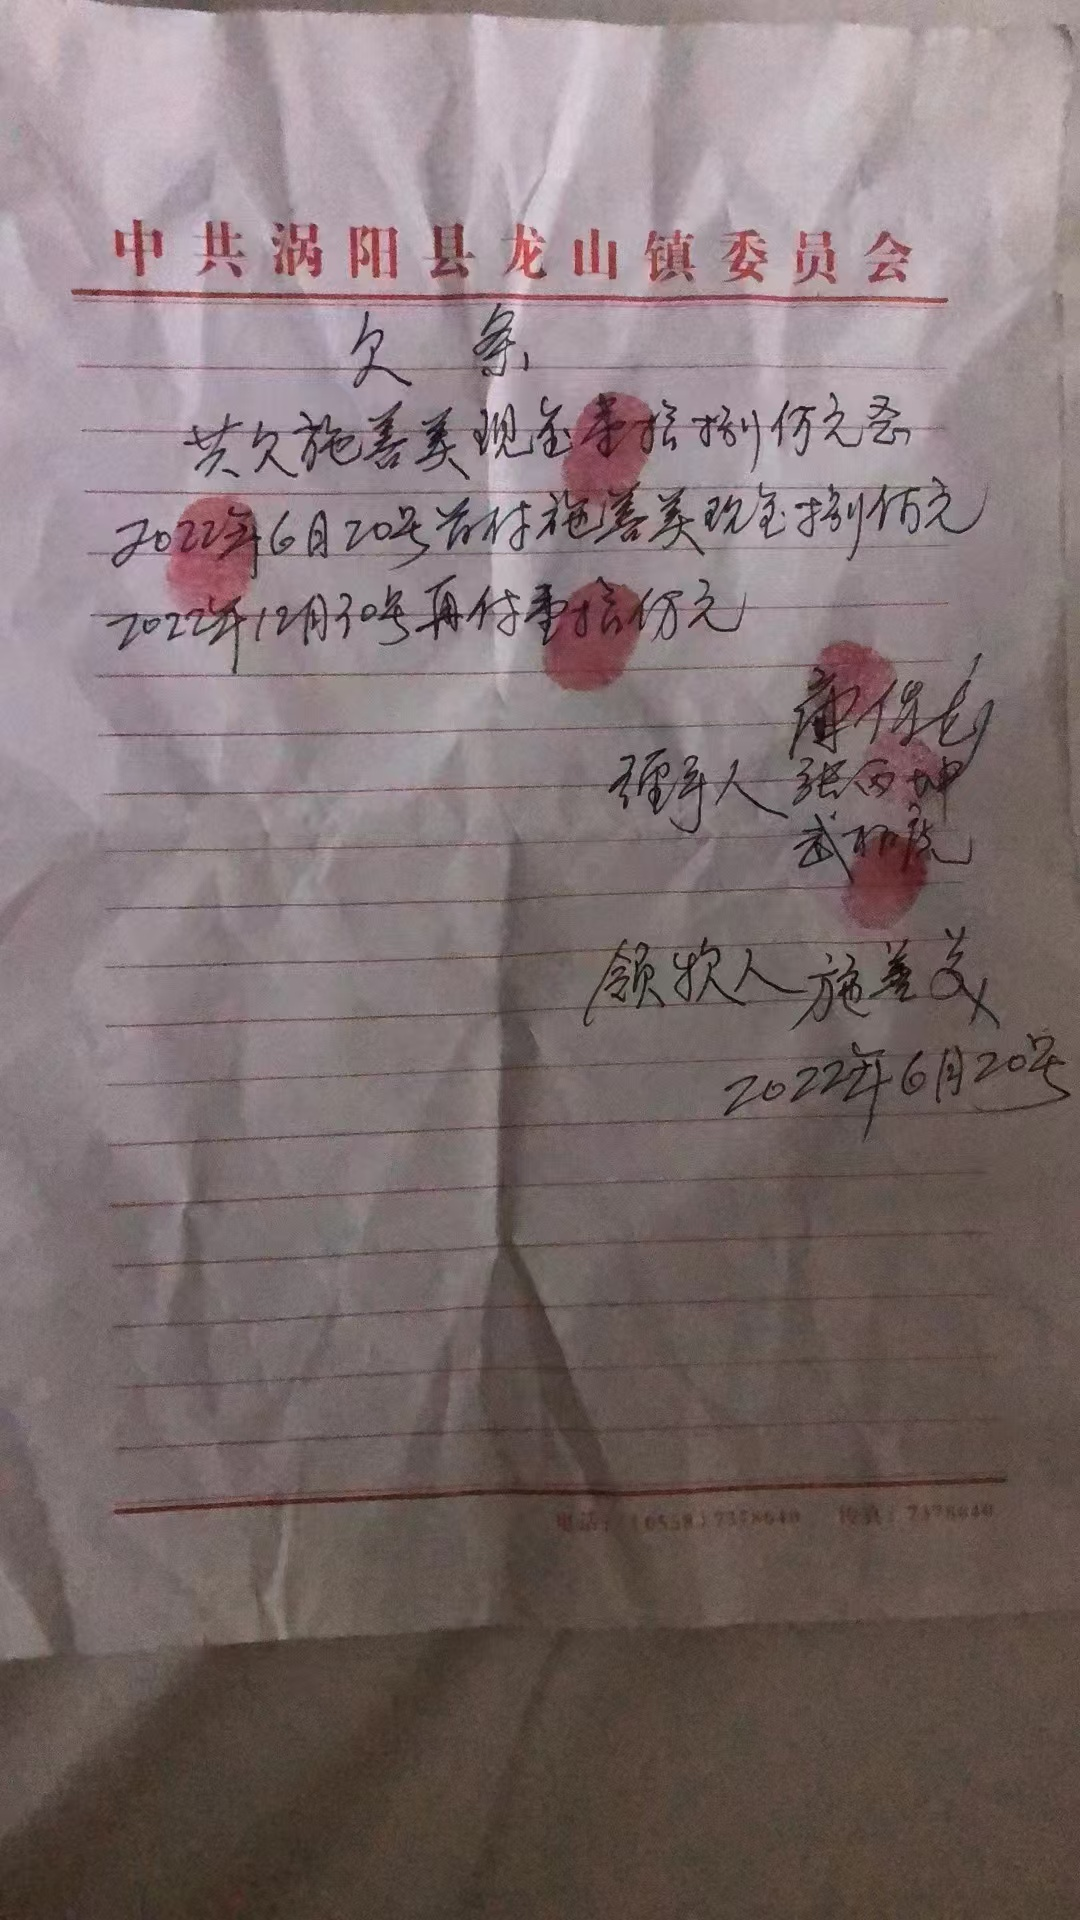 中共涡阳县龙山镇委员会
欠条
共欠施善美现金壹拾捌仟元圣
2022年6月20号首付施善美现金捌佰元
2022年12月30号再付壹拾仟元
保
经手人 张西坤
武
领款人 施善美
2022年6月20号
电话:(0558)7378640 传真:7378640